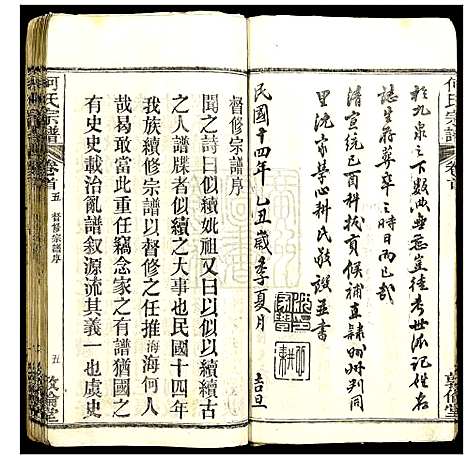 何氏宗譜
卷首
敦倫堂
於九泉之下數典忘崖徒考世派記姓名
誌生存葬卒之時日而已哉
清宣統己酉科拔貢候補直隸州州判同
里沈家馨心耕氏敬譔並書
民國十四年乙丑歲季夏月
吉旦
督修宗譜序
聞之詩曰似續妣祖又曰以似以續續古
之人譜牒者似續之大事也民國十四年
我族續修宗譜以督修之任推海海何人
哉曷敢當此重任竊念家之有譜猶國之
有史史載治亂譜叙源流其義一也虞史
何氏宗譜
卷首
五
督修宗譜序
五
敦倫堂